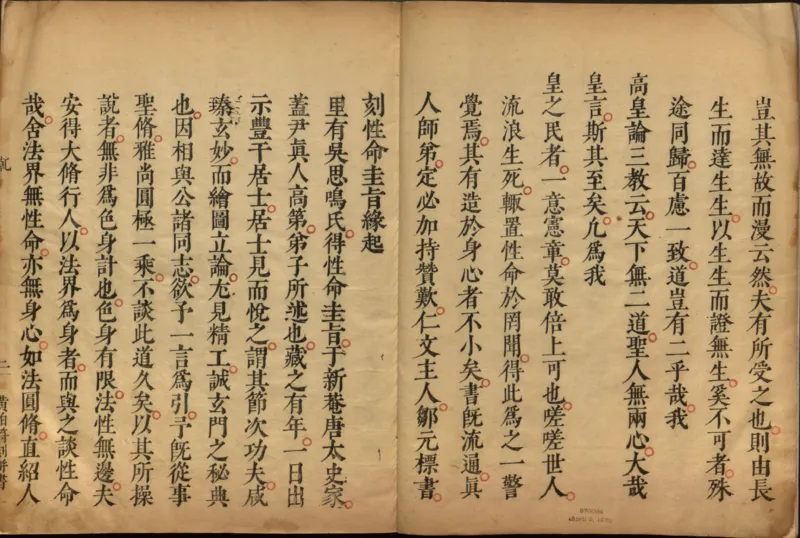 豈其無故而漫云然夫有所受之也則由長
生而達生生以生生而證無生奚不可者殊
途同歸百慮一致道豈有二乎哉我
高皇論三教云天下無二道聖人無兩心大哉
皇言斯其至矣凢爲我
皇之民者一意憲章莫敢倍上可也嗟嗟世人
流浪生死輙置性命於罔聞得此爲之一警
覺焉其有造於身心者不小矣書旣流通眞
人師第定必加持贊歎仁文主人鄒元標書
刻性命圭旨緣起
里有吳思鳴氏得性命圭旨于新菴唐太史家
蓋尹眞人高第弟子所述也藏之有年一日出
示豐干居士居士見而悅之謂其節次功夫咸
臻玄妙而繪圖立論尤見精工誠玄門之秘典
也因相與公諸同志欲予一言爲引予旣從事
聖脩雅尚圓極一乘不談此道久矣以其所操
說者無非爲色身計也色身有限法性無邊夫
安得大脩行人以法界爲身者而與之談性命
哉舍法界無性命亦無身心如法圓脩直紹人